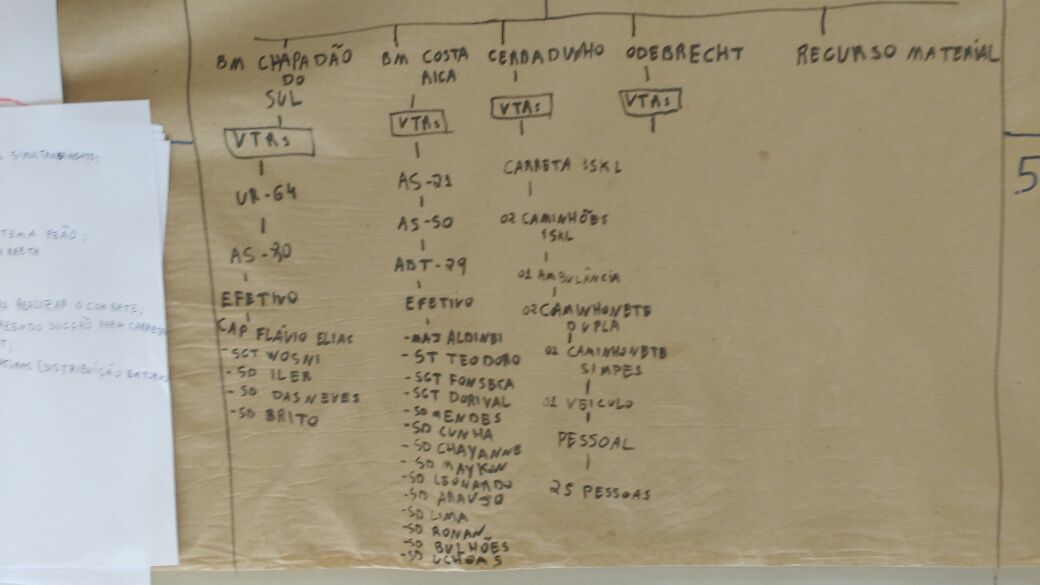 BM CHAPADÃO
DO
SUL
VTRs
UR-64
AS-30
EFETIVO
CAP FLÁVIO ELIAS
-SGT WOSNI
-SD ILER
-SD DAS NEVES
-SD BRITO
BM COSTA
RICA
VTRs
AS-21
AS-50
ABT-29
EFETIVO
-MAJ ALDINEI
-ST TEODORO
-SGT FONSECA
-SGT DORIVAL
-SD MENDES
-SD CUNHA
-SD CHAYANNE
-SD MAYKON
-SD LEONARDO
-SD ARAUJO
-SD LIMA
-SD RONAN
-SD BULHÕES
-SD UCHOAS
CERRADINHO
VTRs
CARRETA 35KL
02 CAMINHÕES
15KL
01 AMBULÂNCIA
02 CAMINHONETE
DUPLA
02 CAMINHONETE
SIMPES
01 VEICULO
PESSOAL
25 PESSOAS
ODEBRECHT
VTRs
RECURSO MATERIAL
5
SIMULTANEAMENTE;
REALIZAR O COMBATE;
SUCÇÃO PARA CARRETA